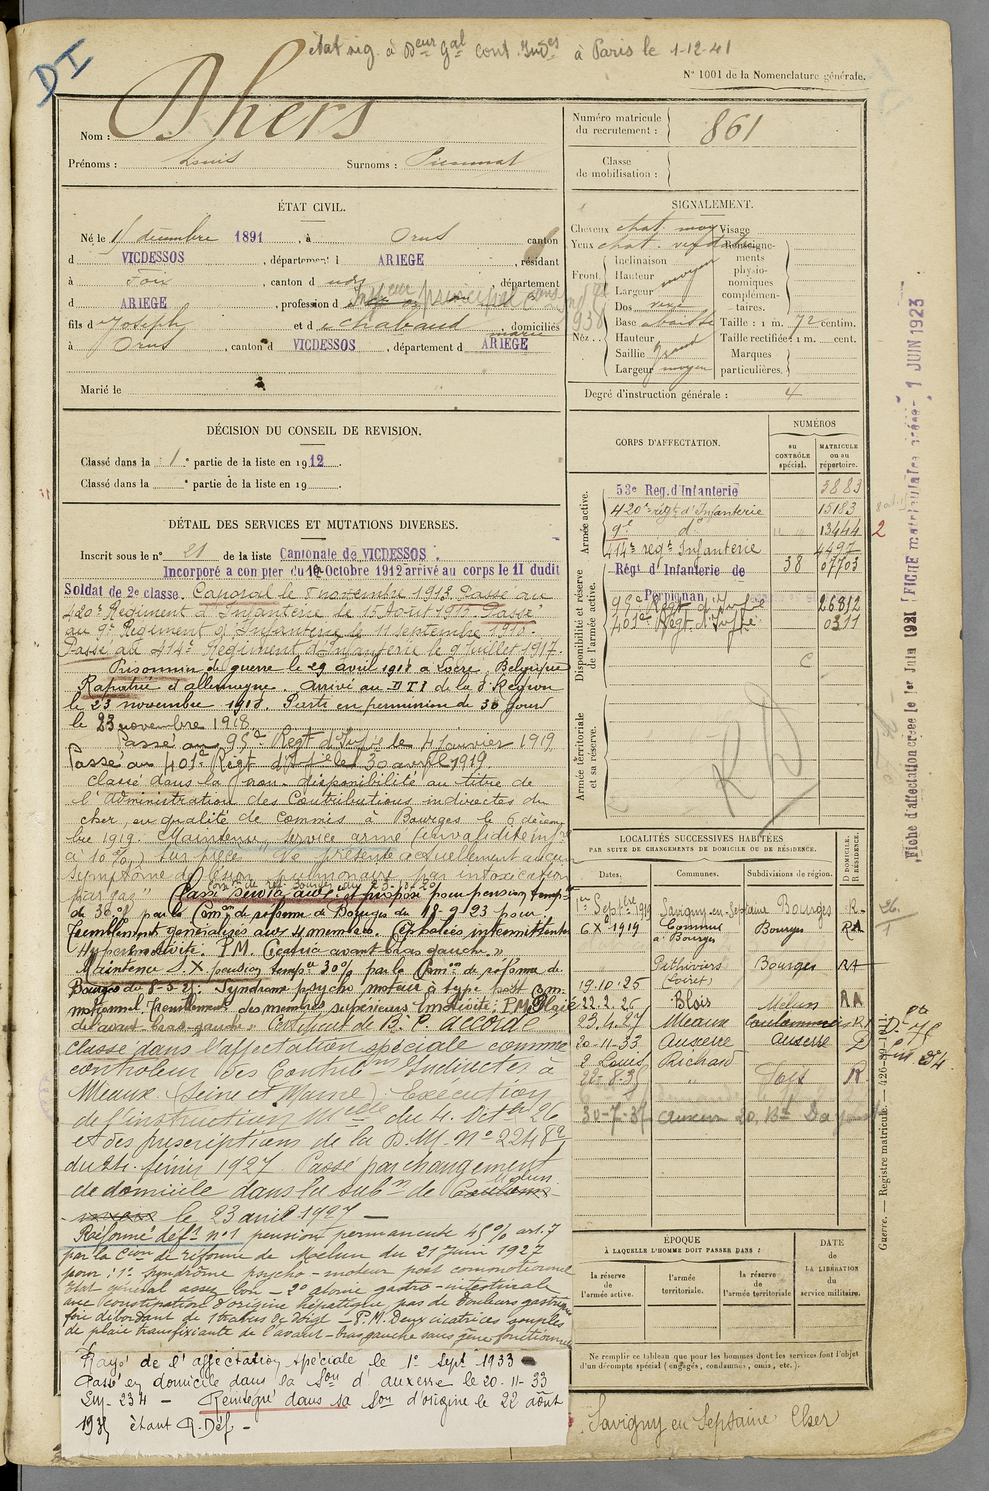 état sig. à Deur Gal Cont. Indes à Paris le 1-12-41
DI
N° 1001 de la Nomenclature générale.
Nom : Dhers
Prénoms : Louis Surnoms :
Numéro matricule du recrutement : 861
Classe de mobilisation :
ÉTAT CIVIL.
Né le décembre 1891, à Orus canton
d VICDESSOS, département d ARIEGE, résidant
à Foix, canton d udg, département
d ARIEGE, profession d
fils d Joseph et d chabaud marie, domiciliés
à Orus, canton d VICDESSOS, département d ARIEGE
Marié le
SIGNALEMENT.
Cheveux chat. moy Visage
Yeux chat. Renseignements physionomiques complémentaires.
Front. Inclinaison
Hauteur moyen
Largeur
Nez. Dos
Base abaissé Taille : 1 m. 72 centim.
Hauteur Taille rectifiée : 1 m. cent.
Saillie grand Marques particulières.
Largeur moyen
Degré d'instruction générale : 4
DÉCISION DU CONSEIL DE REVISION.
Classé dans la 1e partie de la liste en 1912.
Classé dans la e partie de la liste en 19
DÉTAIL DES SERVICES ET MUTATIONS DIVERSES.
Inscrit sous le n° 21 de la liste Cantonale de VICDESSOS.
Incorporé a compter du 10 Octobre 1912 arrivé au corps le 11 dudit
Soldat de 2e classe. Caporal le 8 novembre 1913 Passé au
420e Régiment d'Infanterie le 15 Août 1915 Passé
au 9e Régiment d'Infanterie le 11 septembre 1916.
Passé au 414e Régiment d'Infanterie le 9 Juillet 1917.
Prisonnier de guerre le 29 avril 1918 à Locre, Belgique
Rapatrié d'allemagne. Arrivé au DTI de la Région
le 23 novembre 1918. Parti en permission de 30 jours
le 23 novembre 1918.
Passé au 95e Regt d'Inf ie le 4 janvier 1919
Passé au 401e Régt d'Inf ie le 30 avril 1919.
Classé dans la non-disponibilité au titre de
l'Administration des Contributions indirectes du
cher, en qualité de Commis à Bourges le 6 décem
bre 1919. Maintenu service armé (invalidité inf re
à 10 %) sur pièces "Ne présente actuellement aucun
symptôme de lésion pulmonaire par intoxication
par gaz" Passé service aux. et proposé pour pension temp re
de 30 % par la Com on de réforme de Bourges du 18-2-23 pour :
Tremblements généralisés aux 4 membres. Céphalées intermittentes
Hyperémotivité. P.M. Cicatrice avant-bras gauche."
Maintenu S.X pension temp re 30 % par la Com on de réforme de
Bourges du 8-5-25. Syndrome psycho moteur à type post com-
motionnel tremblement des membres supérieurs Emotivité : P.M. Plaie
de avant-bras gauche" Certificat de B. C. accordé
Classé dans l'affectation spéciale comme
controleur des Contrib ons Indirectes à
Meaux (Seine et Marne) Exécution
de l'instruction M elle du 4. Oct. 26
et des prescriptions de la D.M. N° 2248
du 24. février 1927. Passé par changement
de domicile dans la sub on de Melun
le 23 avril 1927 —
Réformé déf t n°1 pension permanente 45 % art. 7
par la C ion de réforme de Melun du 21 Juin 1927
pour : 1° Syndrôme psycho-moteur post commotionnel
Etat général assez bon - 2° atonie gastro-intestinale
avec constipation d'origine hépatique pas de douleurs gastriques
foie débordant de 1 travers de doigt — P.M. Deux cicatrices souples
de plaie transfixiante de l'avant-bras gauche sans gêne fonctionnelle
Rayé de l'affectation spéciale le 1er Sept 1933
Passé en domicile dans la S on d'auxerre le 20-11-33
234 - Réintégré dans sa S on d'origine le 22 août
1935 étant R. Déf -
CORPS D'AFFECTATION.
NUMÉROS
au CONTRÔLE spécial.
MATRICULE ou au répertoire.
Armée active.
53e Reg. d'Infanterie 3883
420e régt d'Infanterie 15183
9e do 13444 2
414e regt Infanterie 4497
Disponibilité et réserve de l'armée active.
Régt d'Infanterie de Perpignan 38 07703
95e Régt d'Inf ie 26812
401e Régt d'Inf ie 0311
C
Armée territoriale et sa réserve.
RD
LOCALITÉS SUCCESSIVES HABITÉES
PAR SUITE DE CHANGEMENTS DE DOMICILE OU DE RÉSIDENCE.
Dates. Communes. Subdivisions de région. D DOMICILE. R RÉSIDENCE.
1er Septbre 1919 Savigny-en-Septaine Bourges R
6 Xe 1919 Commis à Bourges Bourges RA
19.10.25 Pithiviers (Loiret) Bourges RA
22.2.26 Blois Melun RA
23.4.27 Meaux Coulommiers R
20-11-33 Auxerre auxerre D
2 Louis Richard
22-8-35 " Foix R
30-7-37
ÉPOQUE
À LAQUELLE L'HOMME DOIT PASSER DANS :
la réserve de l'armée active.
l'armée territoriale.
la réserve de l'armée territoriale
DATE de LA LIBÉRATION du service militaire.
Ne remplir ce tableau que pour les hommes dont les services font l'objet d'un décompte spécial (engagés, condamnés, omis, etc.).
Savigny en Septaine Cher
Fiche d'affectation créée le 1er Juin 1921
FICHE matriculaire créée - 1 JUIN 1923
Guerre. — Registre matricule. —